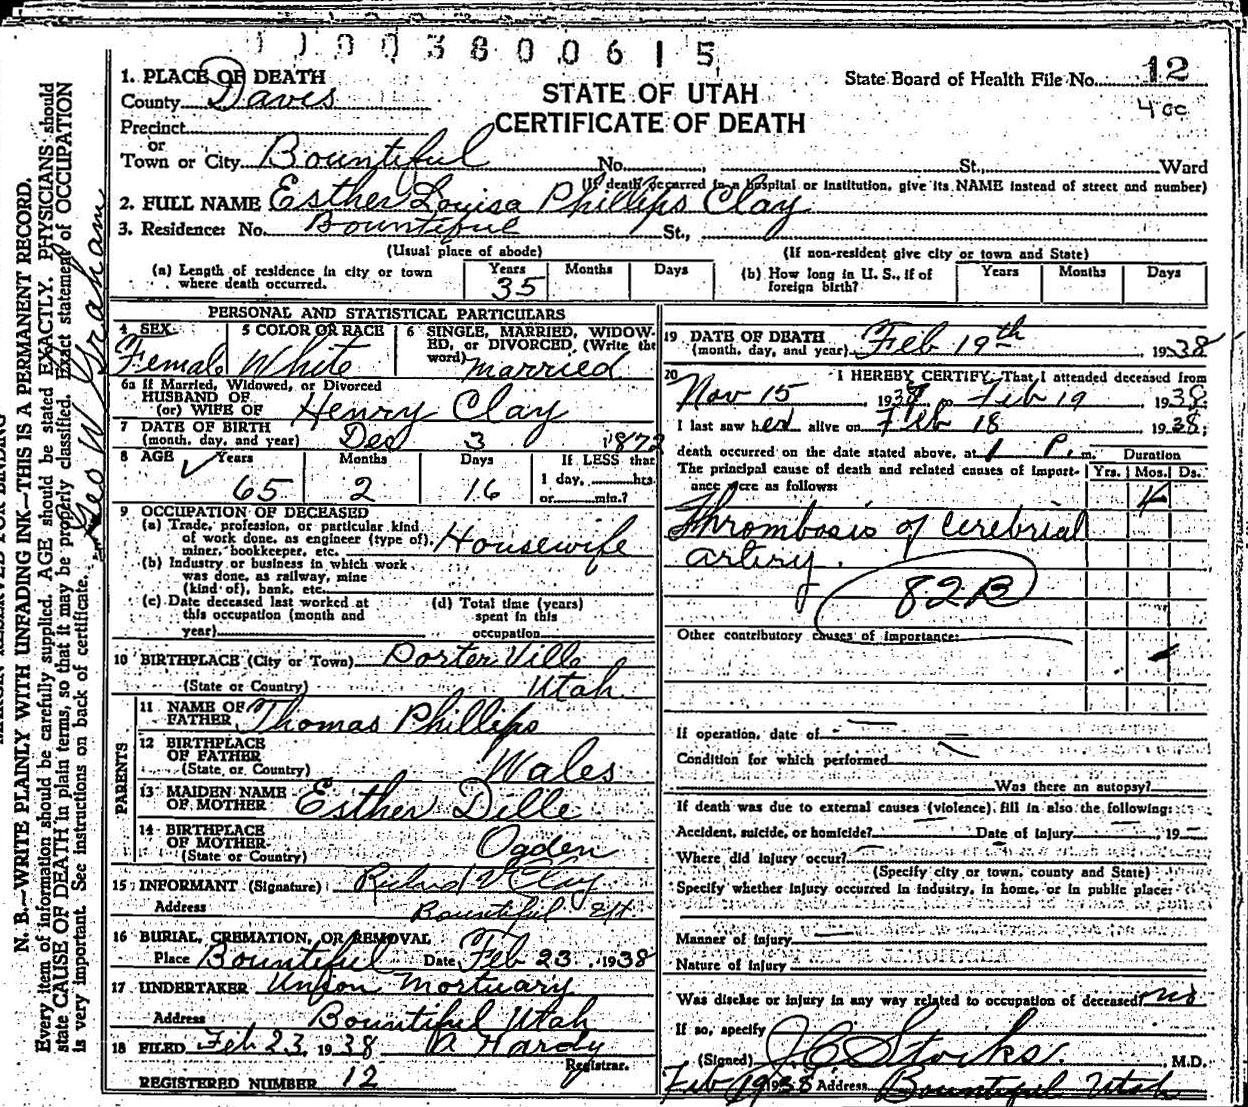 1 1 0 0 3 8 0 0 6 1 5
State Board of Health File No. 12
4 cc
STATE OF UTAH
CERTIFICATE OF DEATH
1. PLACE OF DEATH
County Davis
Precinct
or
Town or City Bountiful No. , St., Ward
(If death occurred in a hospital or institution, give its NAME instead of street and number)
2. FULL NAME Esther Louisa Phillips Clay
3. Residence: No. Bountiful St.,
(Usual place of abode) (If non-resident give city or town and State)
(a) Length of residence in city or town where death occurred. Years 35 Months Days
(b) How long in U. S., if of foreign birth? Years Months Days
PERSONAL AND STATISTICAL PARTICULARS
4 SEX Female
5 COLOR OR RACE White
6 SINGLE, MARRIED, WIDOWED, or DIVORCED, (Write the word) married
6a If Married, Widowed, or Divorced
HUSBAND OF
(or) WIFE OF Henry Clay
7 DATE OF BIRTH
(month, day, and year) Dec 3 1872
8 AGE Years 65 Months 2 Days 16
If LESS than
1 day, hrs.
or min.?
9 OCCUPATION OF DECEASED
(a) Trade, profession, or particular kind
of work done, as engineer (type of),
miner, bookkeeper, etc. Housewife
(b) Industry or business in which work
was done, as railway, mine
(kind of), bank, etc.
(c) Date deceased last worked at
this occupation (month and
year)
(d) Total time (years)
spent in this
occupation
10 BIRTHPLACE (City or Town) Porterville
(State or Country) Utah
PARENTS
11 NAME OF
FATHER Thomas Phillips
12 BIRTHPLACE
OF FATHER
(State or Country) Wales
13 MAIDEN NAME
OF MOTHER Esther Dille
14 BIRTHPLACE
OF MOTHER
(State or Country) Ogden
15 INFORMANT (Signature) Richard V Clay
Address Bountiful Ut.
16 BURIAL, CREMATION, OR REMOVAL
Place Bountiful Date Feb 23, 1938
17 UNDERTAKER Union Mortuary
Address Bountiful Utah
18 FILED Feb 23, 1938 A Hardy
Registrar.
REGISTERED NUMBER 12
19 DATE OF DEATH
(month, day, and year) Feb 19th, 1938
20 I HEREBY CERTIFY, That I attended deceased from
Nov 15 193 to Feb 19 1938
I last saw her alive on Feb 18 1938;
death occurred on the date stated above, at 1 P. m.
The principal cause of death and related causes of importance were as follows:
Duration
Yrs. Mos. Ds.
4
Thrombosis of cerebrial
artery.
82B
Other contributory causes of importance:
If operation, date of
Condition for which performed
Was there an autopsy?
If death was due to external causes (violence), fill in also the following:
Accident, suicide, or homicide? Date of injury , 19
Where did injury occur?
(Specify city or town, county and State)
Specify whether injury occurred in industry, in home, or in public place:
Manner of injury
Nature of injury
Was disease or injury in any way related to occupation of deceased? no
If so, specify
(Signed) J C Stocks, M.D.
Feb 19 1938 Address Bountiful Utah
N. B.—WRITE PLAINLY WITH UNFADING INK—THIS IS A PERMANENT RECORD.
Every item of information should be carefully supplied. AGE should be stated EXACTLY. PHYSICIANS should
state CAUSE OF DEATH in plain terms, so that it may be properly classified. Exact statement of OCCUPATION
is very important. See instructions on back of certificate.
Geo W Graham